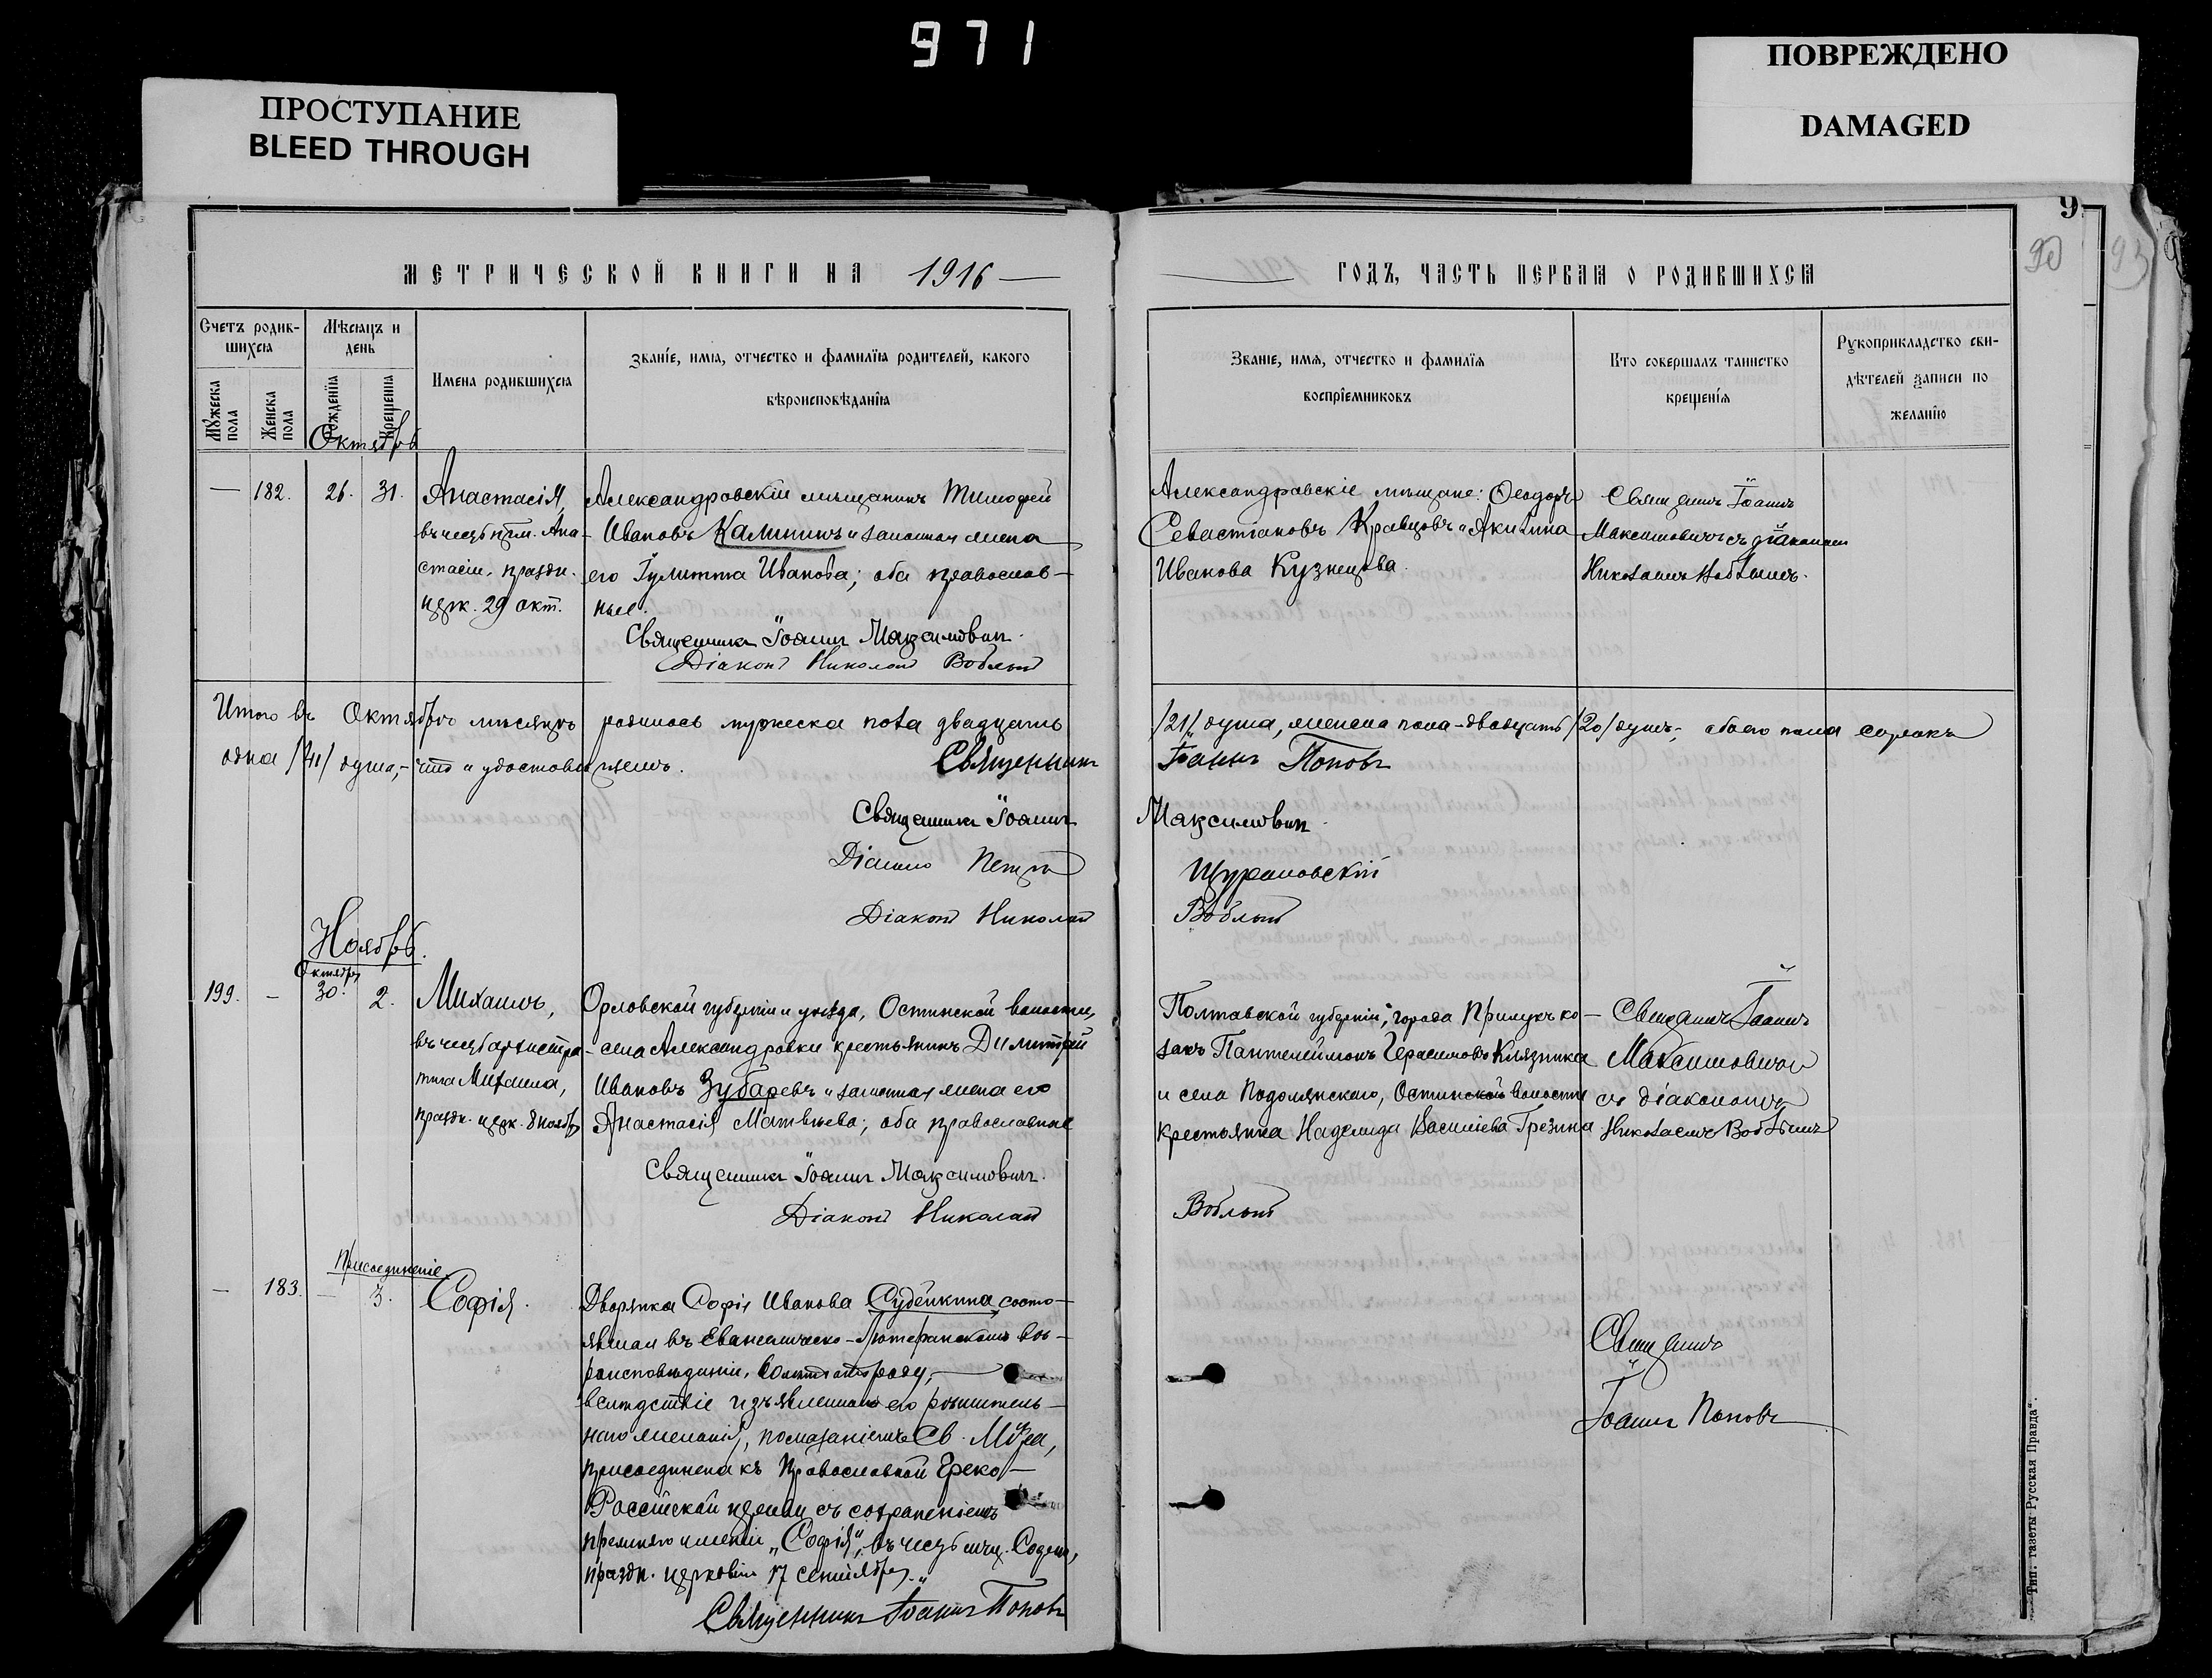 971
ПРОСТУПАНИЕ
BLEED THROUGH
ПОВРЕЖДЕНО
DAMAGED
9
90
93
МЕТРИЧЕСКОЙ КНИГИ НА 1916
ГОДЪ, ЧАСТЬ ПЕРВАЯ О РОДИВШИХСЯ
Счетъ родив-
шихся
Мѣсяцъ и
день
Имена родившихся
Званіе, имя, отчество и фамилія родителей, какого
вѣроисповѣданія
Мужеска пола
Женска пола
Рожденія
Крещенія
Званіе, имя, отчество и фамилія
воспріемниковъ
Кто совершалъ таинство
крещенія
Рукоприкладство сви-
дѣтелей записи по
желанію
Октябрь
— 182. 26. 31.
Анастасія,
въ честь прм. Ана-
стасіи, праздн.
церк. 29 окт.
Александровскій мѣщанинъ Тимофей
Ивановъ Калининъ и законная жена
его Іулитта Иванова; оба православ-
ные.
Священникъ Іоаннъ Максимовичъ.
Діаконъ Николай Воблый
Александровскіе мѣщане: Ѳеодоръ
Севастіановъ Кравцовъ и Акилина
Иванова Кузнецова.
Священникъ Іоаннъ
Максимовичъ съ діакономъ
Николаемъ Воблымъ.
Итого въ Октябрѣ мѣсяцѣ родилось мужеска пола двадцать
одна /41/ душа,- что и удостовѣряемъ. Священникъ
/21/ душа, женска пола - двадцать /20/ душъ; обоего пола сорокъ
Іоаннъ Поповъ
Священникъ Іоаннъ
Максимовичъ
Діаконъ Петръ
Щурановскій
Діаконъ Николай
Воблый
Ноябрь.
Октября
199. — 30. 2.
Михаилъ,
въ честь архистра-
тига Михаила,
праздн. церк. 8 ноября
Орловской губерніи и уѣзда, волости,
села Александровки крестьянинъ Димитрій
Ивановъ Зубаревъ и законная жена его
Анастасія Матвѣева; оба православные
Священникъ Іоаннъ Максимовичъ.
Діаконъ Николай
Полтавской губерніи, города Прилукъ ко-
закъ Пантелеймонъ Герасимовъ
и села волости
крестьянка Надежда Васильева
Воблый
Священникъ Іоаннъ
Максимовичъ
съ діакономъ
Николаемъ Воблымъ
Присоединеніе
— 183. — 3.
Софія.
Дворянка Софія Иванова Судейкина, состо-
явшая въ Евангелическо-Лютеранскомъ вѣ-
роисповѣданіи,
вслѣдствіе изъявленнаго ею рѣшитель-
наго желанія, помазаніемъ Св. Мѵра,
присоединена къ Православной Греко-
Россійской церкви съ сохраненіемъ
прежняго имени „Софія", въ честь мчц. Софіи,
праздн. церковью 17 сентября."
Священникъ Іоаннъ Поповъ
Священникъ
Іоаннъ Поповъ
Тип. газеты „Русская Правда".